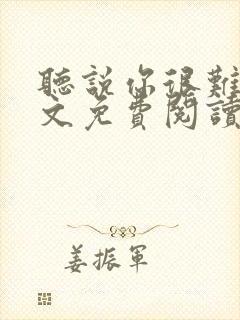 聽說你很難
文免費閱讀
姜振軍